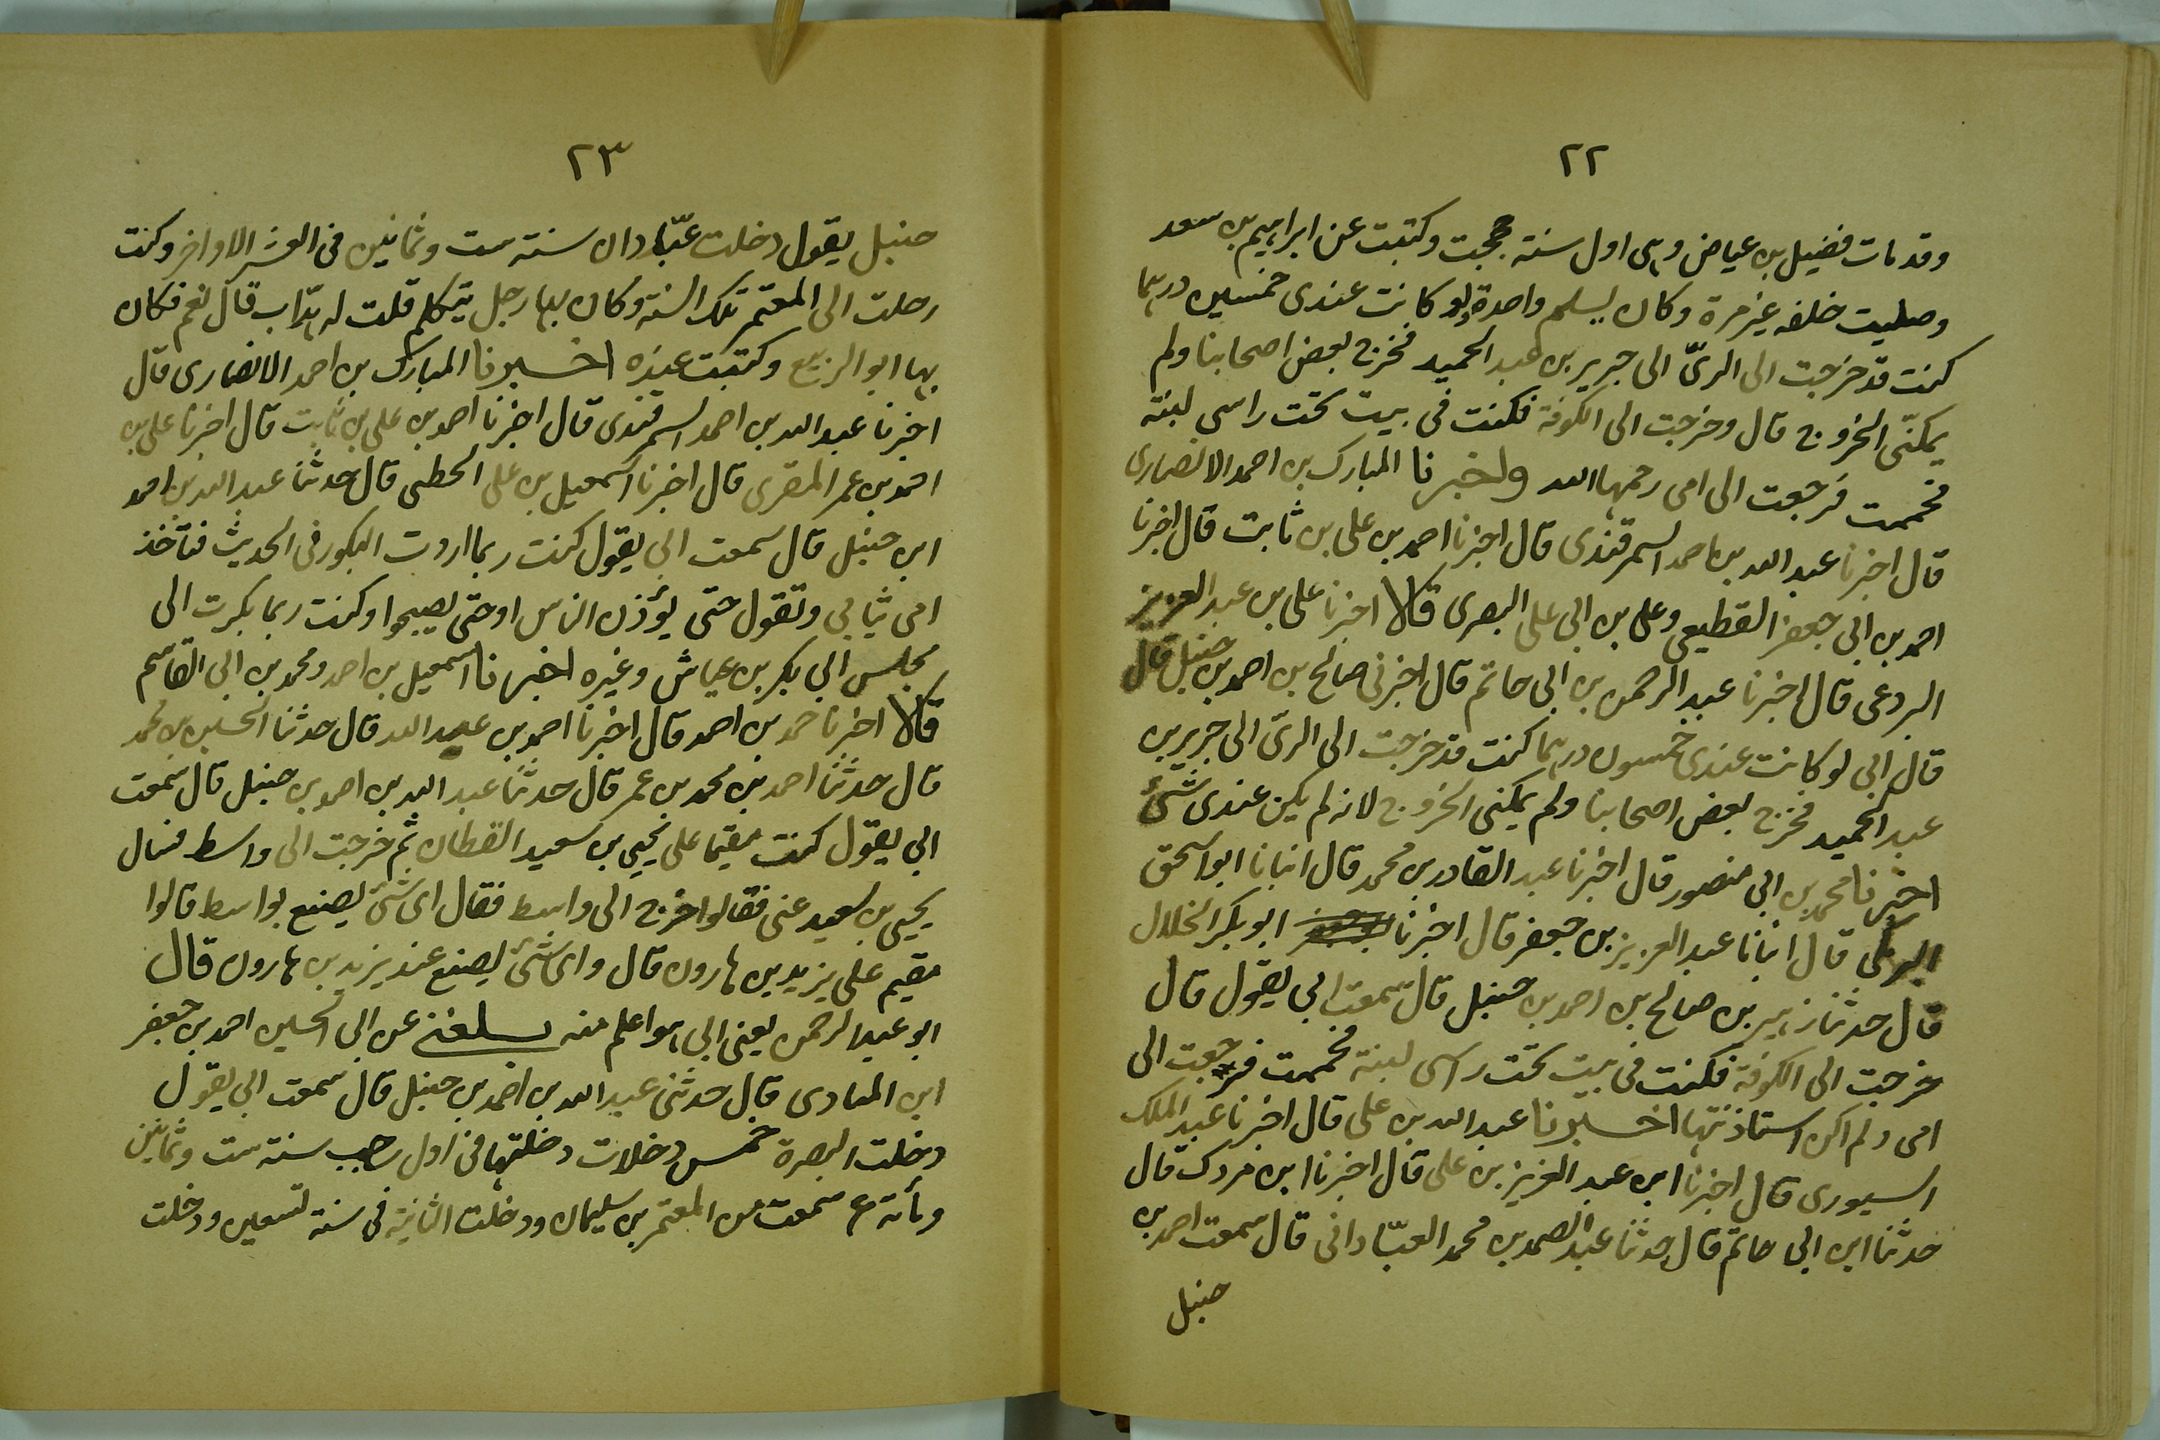 ٢٢
وقد مات فضيل بن عياض وهى اول سنة حججت وكتبت عن ابراهيم بن سعد
وصليت خلفه غير مرة وكان يسلم واحدة ولو كانت عندى خمسين درهما
كنت قد خرجت الى الرىّ الى جرير بن عبد الحميد فخرج بعض اصحابنا ولم
يمكنّى الخروج قال وخرجت الى الكوفة فكنت فى بيت تحت راسى لبنة
فحممت فرجعت الى امى رحمها الله واخبرنا المبارك بن احمد الانصارى
قال اخبرنا عبد الله بن احمد السمرقندى قال اخبرنا احمد بن على بن ثابت قال اخبرنا
احمد بن ابى جعفر القطيعى وعلى بن ابى على البصرى قالا اخبرنا على بن عبد العزيز
البردعى قال اخبرنا عبد الرحمن بن ابى حاتم قال اخبرنى صالح بن احمد بن حنبل قال
قال ابى لو كانت عندى خمسون درهما كنت قد خرجت الى الرىّ الى جرير بن
عبد الحميد فخرج بعض اصحابنا ولم يمكنى الخروج لانه لم يكن عندى شئ
اخبرنا محمد بن ابى منصور قال اخبرنا عبد القادر بن محمد قال انبانا ابو اسحق
البرمكى قال انبانا عبد العزيز بن جعفر قال اخبرنا ابو بكر الخلال
قال حدثنا زهير بن صالح بن احمد بن حنبل قال سمعت ابى يقول قال
خرجت الى الكوفة فكنت فى بيت تحت راسى لبنة فحممت فرجعت الى
امى ولم اكن استاذنتها اخبرنا عبد الله بن على قال اخبرنا عبد الملك
السيورى قال اخبرنا ابن عبد العزيز بن على قال اخبرنا ابن مردك قال
حدثنا ابن ابى حاتم قال حدثنا عبد الصمد بن محمد العبّادانى قال سمعت احمد بن
حنبل
٢٣
حنبل يقول دخلت عبّادان سنة ست وثمانين فى العشر الاواخر وكنت
رحلت الى المعتمر تلك السنة وكان بها رجل يتكلم قلت له هدّاب قال نعم فكان
بها ابو الربيع وكتبت عنه اخبرنا المبارك بن احمد الانصارى قال
اخبرنا عبد الله بن احمد السمرقندى قال اخبرنا احمد بن على بن ثابت قال اخبرنا على بن
احمد بن عمر المقرى قال اخبرنا اسمعيل بن على الخطبى قال حدثنا عبد الله بن احمد
ابن حنبل قال سمعت ابى يقول كنت ربما اردت البكور فى الحديث فتاخذ
امى ثيابى وتقول حتى يؤذن الناس او حتى يصبحوا وكنت ربما بكرت الى
مجلس ابى بكر بن عياش وغيره اخبرنا اسمعيل بن احمد ومحمد بن ابى القاسم
قالا اخبرنا حمد بن احمد قال اخبرنا احمد بن عبد الله قال حدثنا الحسين بن محمد
قال حدثنا احمد بن محمد بن عمر قال حدثنا عبد الله بن احمد بن حنبل قال سمعت
ابى يقول كنت مقيما على يحيى بن سعيد القطان ثم خرجت الى واسط فسال
يحيى بن سعيد عنى فقالوا خرج الى واسط فقال اى شئ يصنع بواسط قالوا
مقيم على يزيد بن هارون قال واى شئ يصنع عند يزيد بن هارون قال
ابو عبد الرحمن يعنى ابى هو اعلم منه بلغنى عن ابى الحسين احمد بن جعفر
ابن المنادى قال حدثنى عبد الله بن احمد بن حنبل قال سمعت ابى يقول
دخلت البصرة خمس دخلات دخلتها فى اول رجب سنة ست وثمانين
ومأته سمعت من المعتمر بن سليمان ودخلت الثانية فى سنة تسعين ودخلت